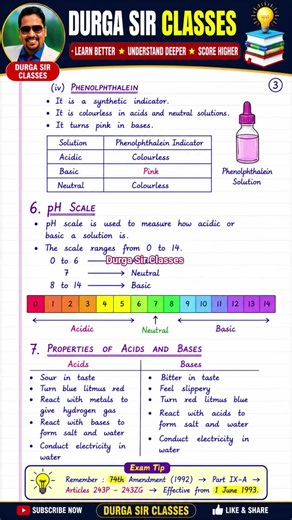 DURGA SIR CLASSES
• LEARN BETTER ★ UNDERSTAND DEEPER ★ SCORE HIGHER •
DURGA SIR
CLASSES
(iv) PHENOLPHTHALEIN
3
• It is a synthetic indicator.
• It is colourless in acids and neutral solutions.
• It turns pink in bases.
Solution Phenolphthalein Indicator
Acidic Colourless
Basic Pink
Neutral Colourless
Phenolphthalein
Solution
6. pH SCALE
• pH scale is used to measure how acidic or
basic a solution is.
• The scale ranges from 0 to 14.
0 to 6 → Acidic
Durga Sir Classes
7 → Neutral
8 to 14 → Basic
0 1 2 3 4 5 6 7 8 9 10 11 12 13 14
Acidic Neutral Basic
7. PROPERTIES OF ACIDS AND BASES
Acids Bases
• Sour in taste
• Turn blue litmus red
• React with metals to
give hydrogen gas
• React with bases to
form salt and water
• Conduct electricity in
water
• Bitter in taste
• Feel slippery
• Turn red litmus blue
• React with acids to
form salt and water
• Conduct electricity in
water
Exam Tip
Remember : 74th Amendment (1992) → Part IX-A →
Articles 243P - 243ZG → Effective from 1 June 1993.
SUBSCRIBE NOW
DURGA SIR CLASSES
LIKE & SHARE